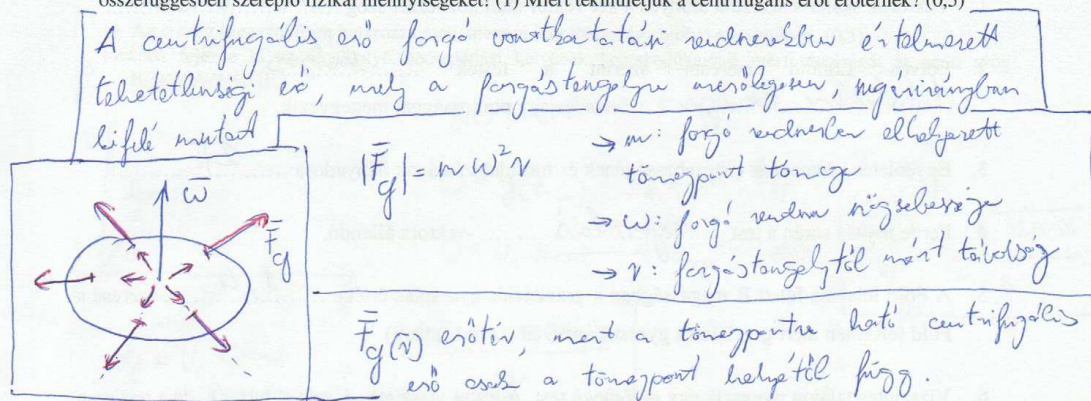 összefüggésben szereplő fizikai mennyiségeket! (1) Miért tekinthetjük a centrifugális erőt erőtérnek? (0,5)
A centrifugális erő forgó vonatkoztatási rendszerekben értelmezett
tehetetlenségi erő, mely a forgástengelyre merőlegesen, sugárirányban
kifelé mutat
|F̅cf| = mω²r
→ m: forgó rendszerben elhelyezett
tömegpont tömege
→ ω: forgó rendszer szögsebessége
→ r: forgástengelytől mért távolság
ω
F̅cf
F̅cf(r̅) erőtér, mert a tömegpontra ható centrifugális
erő csak a tömegpont helyétől függ.